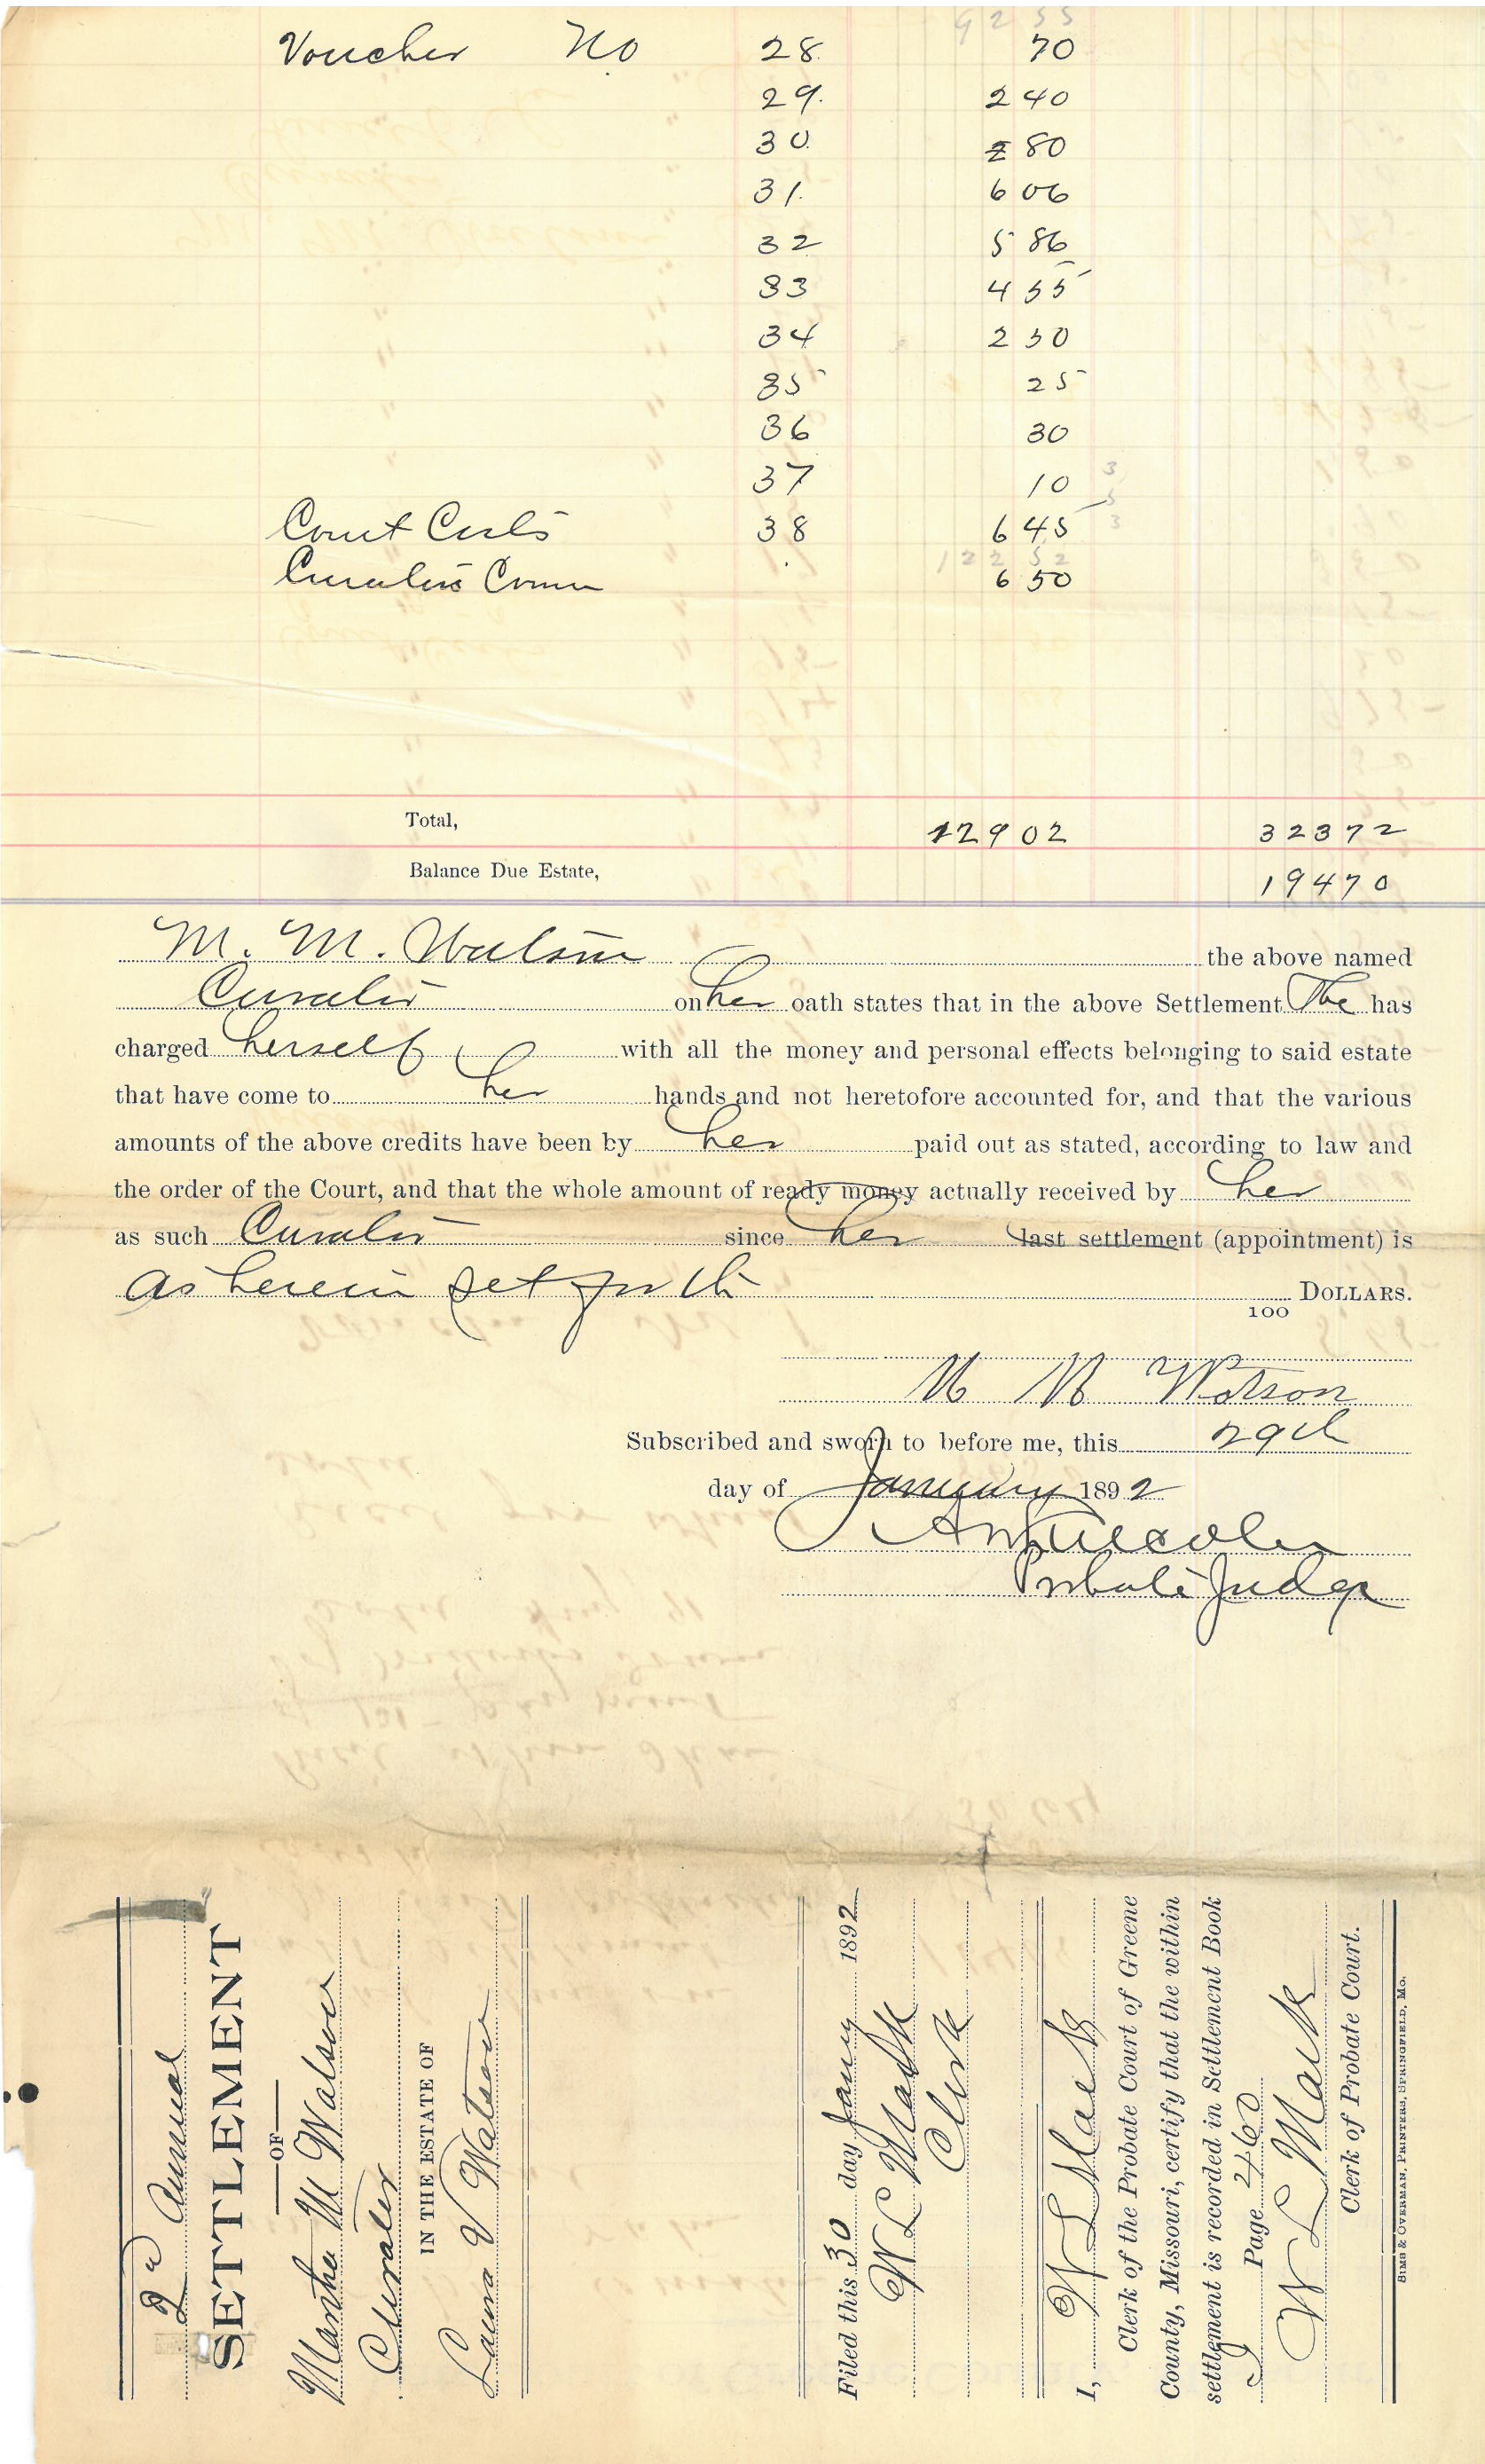 92 55
Voucher No 28. 70
29. 2 40
30. 80
31. 6 06
32 5 86
33 4 55
34 2 50
35 25
36 30
37 10
Court Costs 38 6 45
122 52
Curators Comm 6 50
Total, 129 02 323 72
Balance Due Estate, 194 70
M. M. Watson the above named
Curator on her oath states that in the above Settlement She has
charged herself with all the money and personal effects belonging to said estate
that have come to her hands and not heretofore accounted for, and that the various
amounts of the above credits have been by her paid out as stated, according to law and
the order of the Court, and that the whole amount of ready money actually received by her
as such Curator since her last settlement (appointment) is
as herein set forth 100 DOLLARS.
M M Watson
Subscribed and sworn to before me, this 29th
day of January 1892
Probate Judge
2d Annual
SETTLEMENT
OF
Martha M Watson
Curator
IN THE ESTATE OF
Laura V Watson
Filed this 30 day Jany 1892
W L Mack
Clerk
I, W L Mack
Clerk of the Probate Court of Greene
County, Missouri, certify that the within
settlement is recorded in Settlement Book
J Page 460
W L Mack
Clerk of Probate Court.
SIMS & OVERMAN, PRINTERS, SPRINGFIELD, MO.